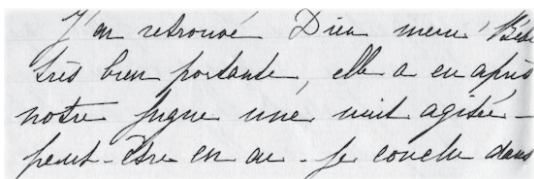 J'ai retrouvé Dieu merci Bébé
très bien portante, elle a eu après
notre fugue une nuit agitée -
peut-être en ai - je couche dans